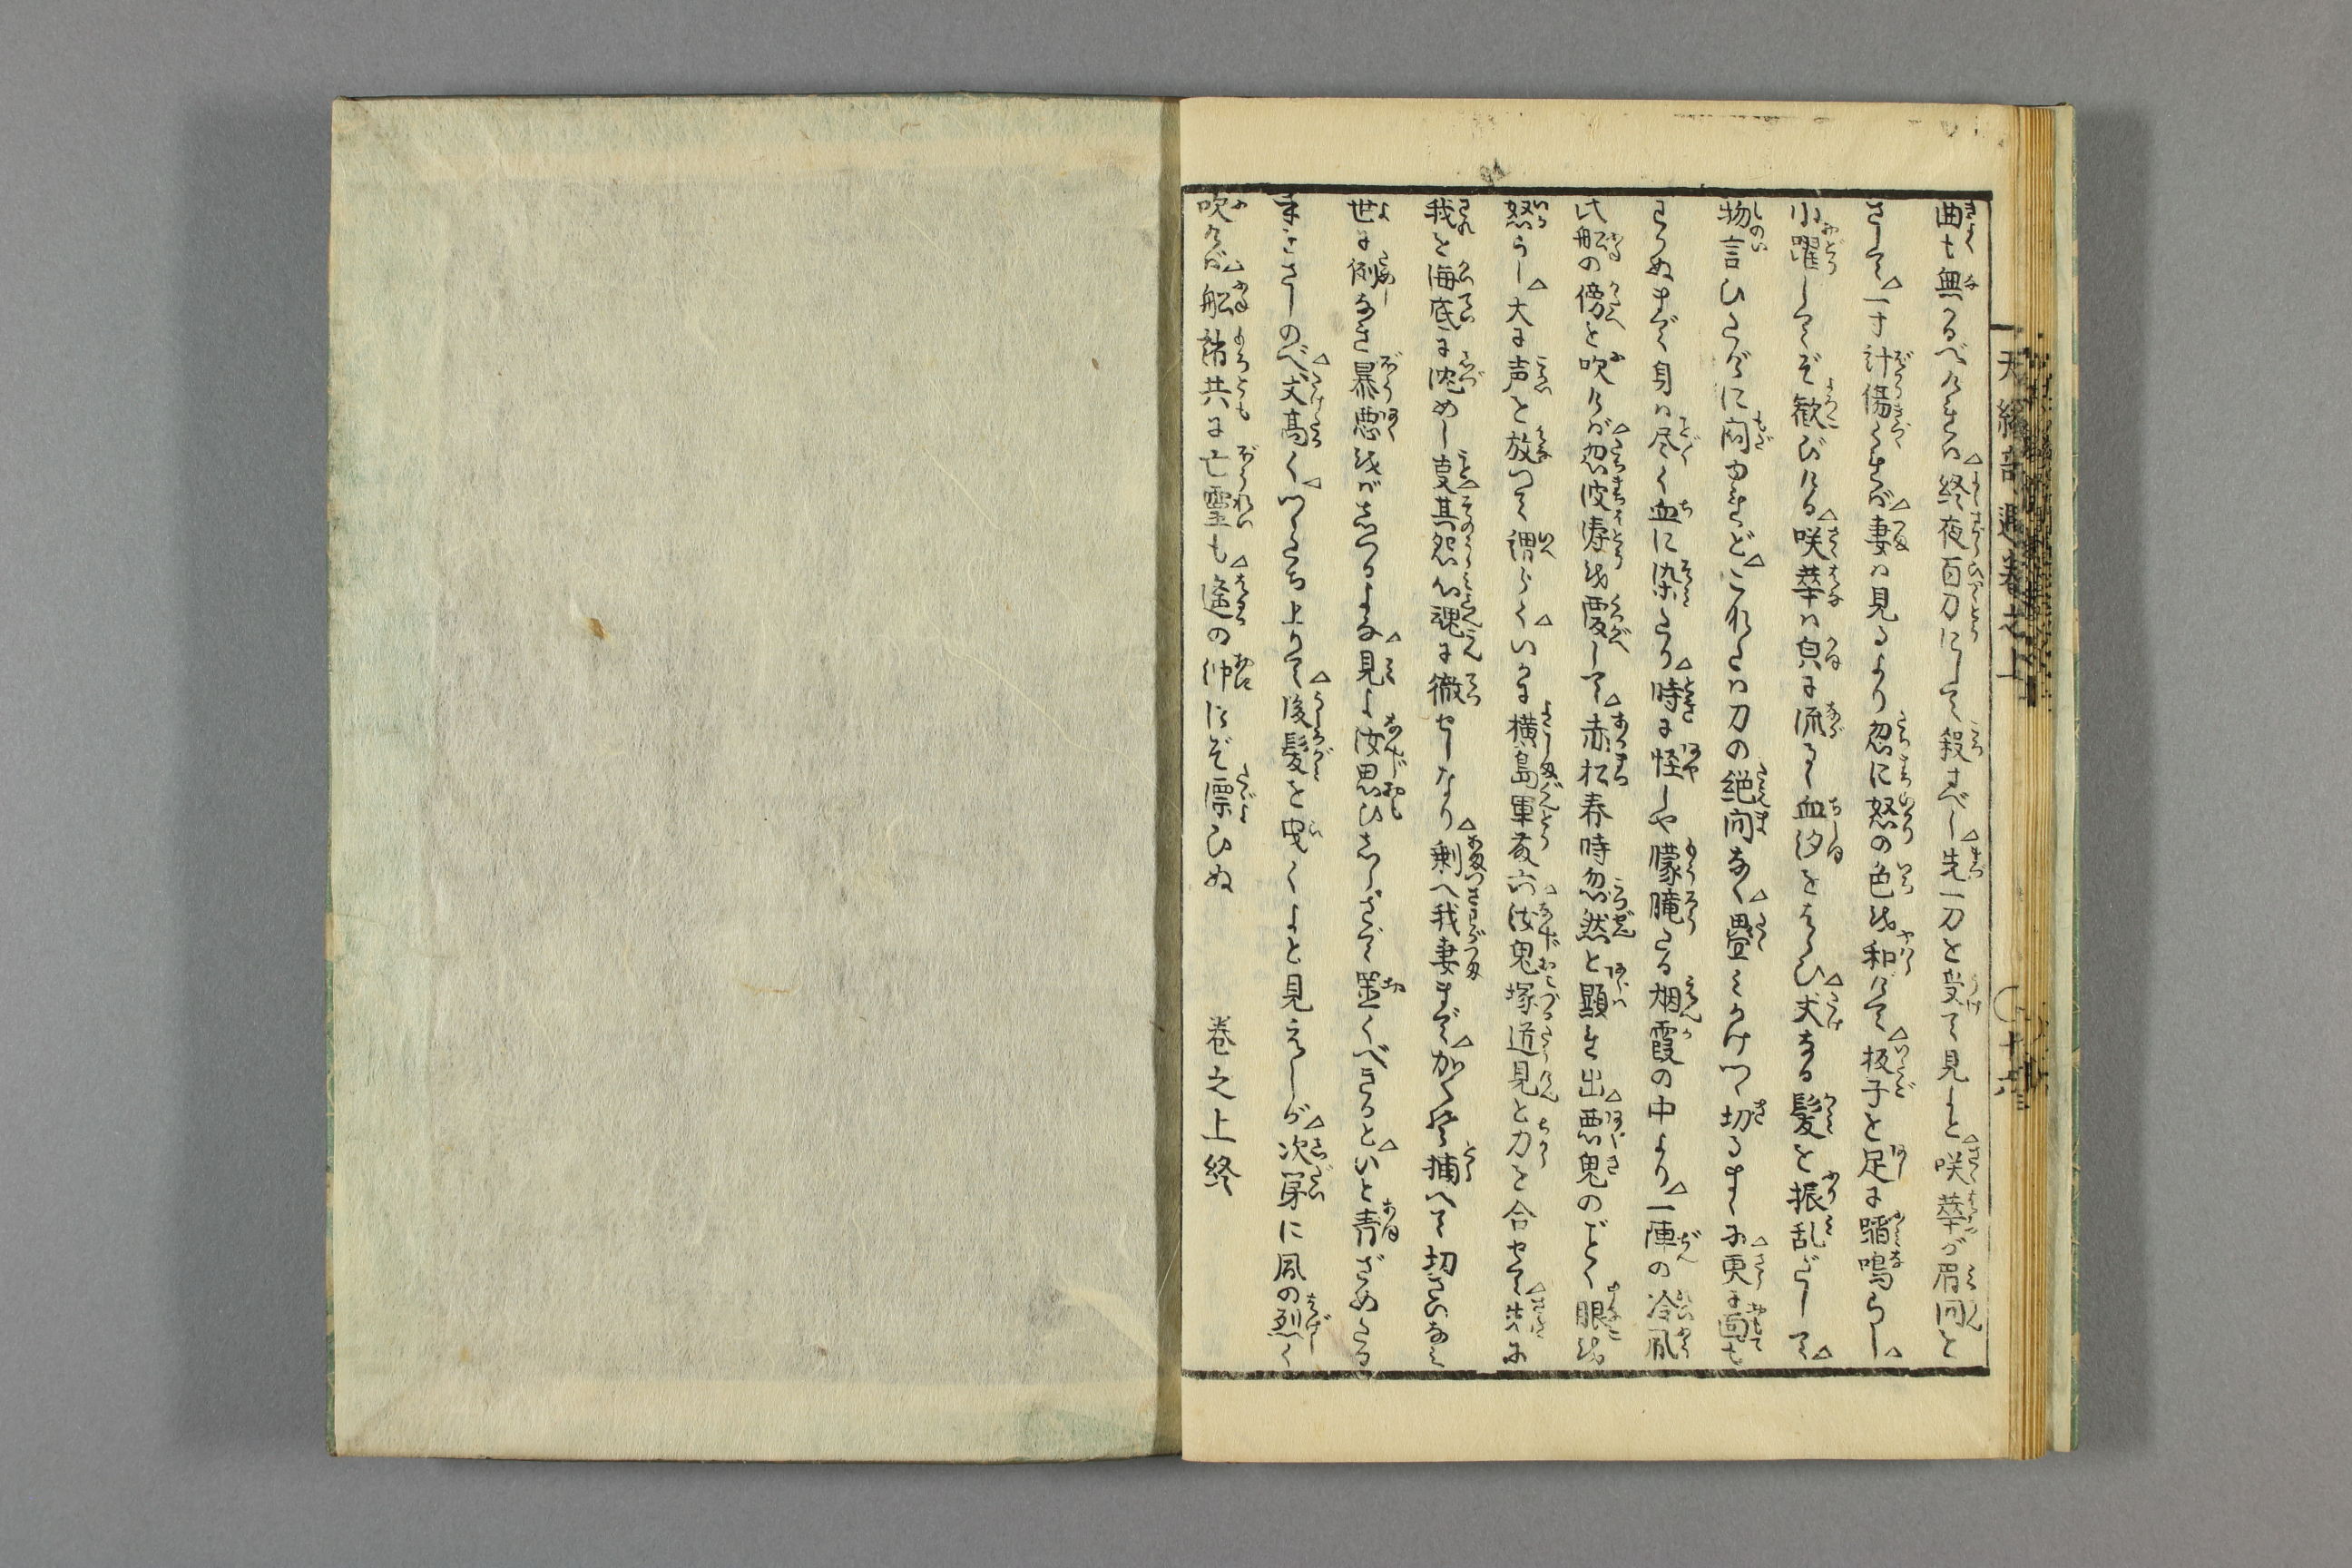 曲も無かるべければ△終夜百刀にして殺すべし△先一刀を受て見よと△咲華が眉間を
さして△一寸計傷くれば△妻は見るより忽に怒の色を和げて△板子を足に踏鳴らし△
小躍してぞ歓びける△咲華は身に流るゝ血汐をはらひ△丈なる髪を振乱だして△
物言ひたげに悶ゆれど△これも刀の絶間なく△畳みかけつゝ切るまゝに△更に面も
わかぬまで身は尽く血に染たり△時に怪しや朦朧たる烟霞の中より△一陣の冷風
此船の傍を吹けば△忽波濤を覆して△赤松春時忽然と顕れ出△悪鬼のごとく眼を
怒らし△大に声を放つて謂らく△いかに横島軍藤六△汝鬼塚道見と力を合せて△先に
我を海底に沈めし事△其怨心魂に徹せしなり△剰へ我妻まで△かく絡捕へて切さいなみ
世に例なき暴悪をばなせるよな△見よ汝思ひしらさで置くべきかと△いと青ざめたる
手をさしのべ△丈高く△つゝたち上りて△後髪を曳くよと見えしが△次第に風の烈く
吹けば△船諸共に亡霊も△遙の沖にぞ漂ひぬ
巻之上終
天縁奇遇巻之上
十六